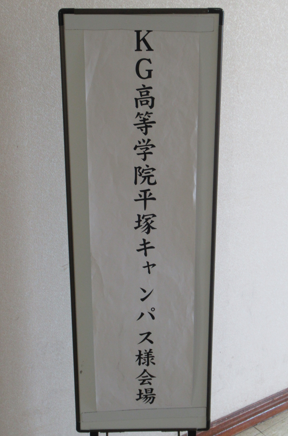 KG高等学院平塚キャンパス様会場